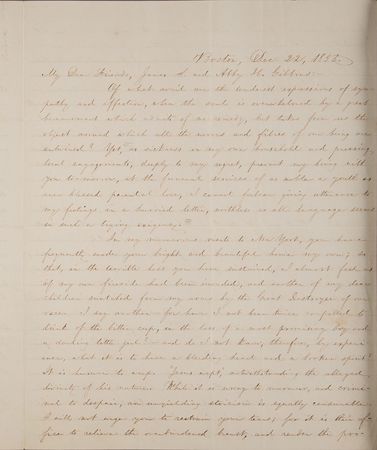 Boston, Dec. 22, 1855.
My Dear Friends, James S. and Abby H. Gibbons:—
Of what avail are the tenderest expressions of sym-
pathy and affection, when the soul is overwhelmed by a great
bereavement which admits of no remedy, but takes from us the
object around which all the nerves and fibres of our being are
entwined? Yet, as sickness in my own household and pressing
local engagements, deeply to my regret, prevent my being with
you to-morrow, at the funeral services of as noble a youth as
ever blessed parental love, I cannot refrain giving utterance to
my feelings in a hurried letter, worthless as all language seems
in such a trying exigency.
In my numerous visits to New York, you have
frequently made your bright and beautiful home my own; so
that, in the terrible loss you have sustained, I almost feel as
if my own fireside had been invaded, and another of my dear
children snatched from my arms by the Great Destroyer of our
race. I say another—for have I not been twice compelled to
drink of the bitter cup, in the loss of a most promising boy and
a darling little girl?—and do I not know, therefore, by experi-
ence, what it is to have a bleeding heart and a broken spirit?
It is human to weep. Jesus wept, notwithstanding the alleged
divinity of his nature. While it is wrong to murmur, and crimi-
nal to despair, an unyielding stoicism is equally censurable.
I will not urge you to restrain your tears; for it is their of-
fice to relieve the overburdened heart, and render the poi-